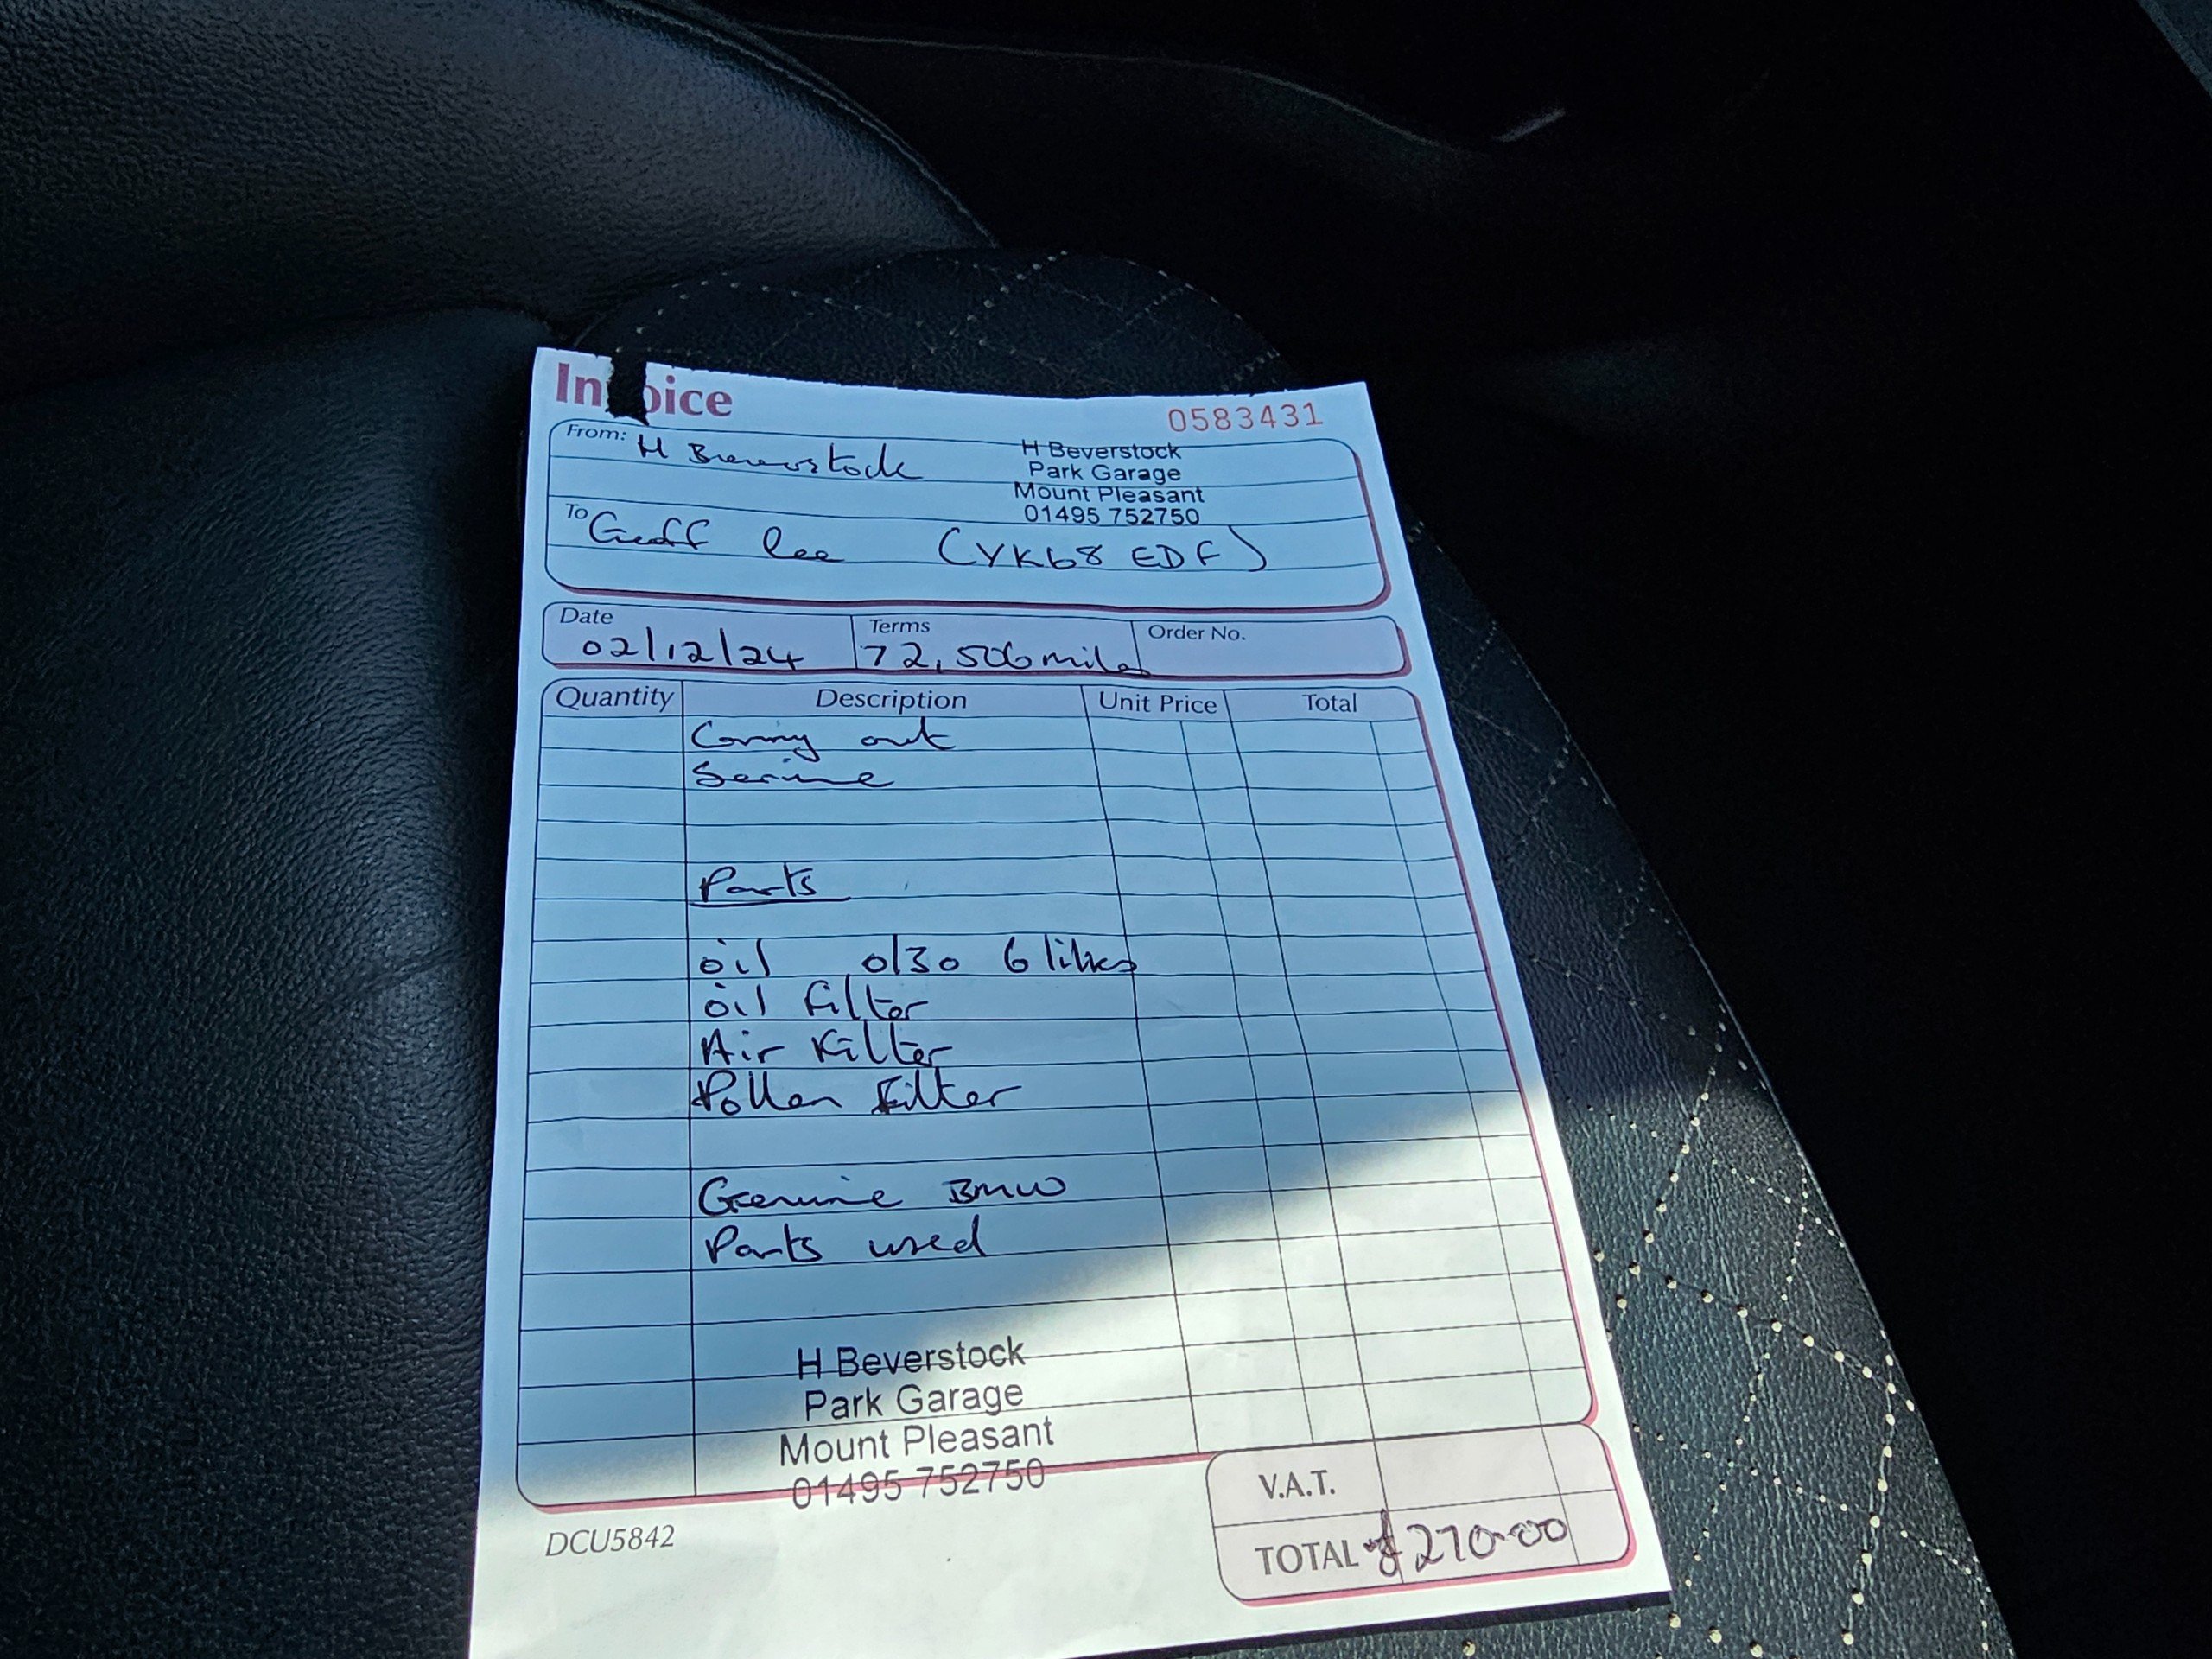 Invoice
0583431
From: H Beverstock
H Beverstock
Park Garage
Mount Pleasant
01495 752750
To Geoff Lee (YK68 EDF)
Date Terms Order No.
02/12/24 72,506 miles
Quantity Description Unit Price Total
Carry out
Service
Parts
oil 0/30 6 litres
oil Filter
Air Filter
Pollen Filter
Genuine BMW
Parts used
H Beverstock
Park Garage
Mount Pleasant
01495 752750
V.A.T.
TOTAL £270.00
DCU5842